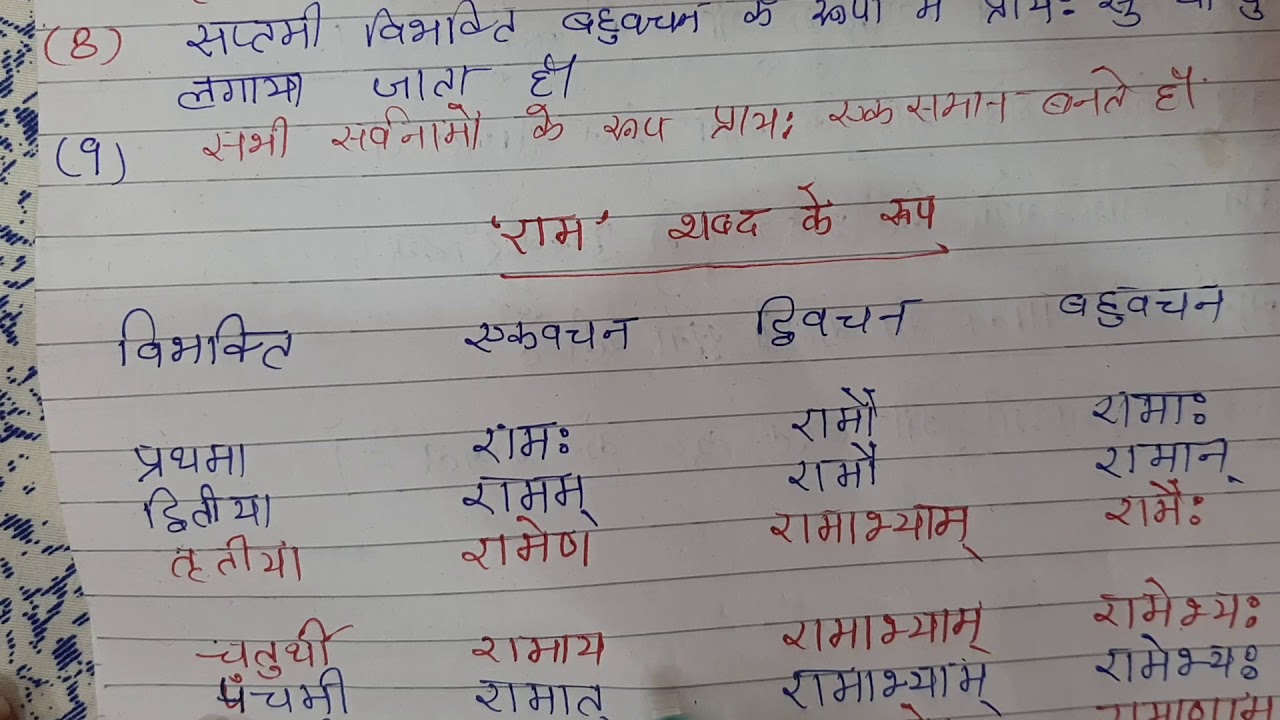 (8) सप्तमी विभक्ति बहुवचन के रूपों में प्रायः सु
लगाया जाता है।
(9) सभी सर्वनामों के रूप प्रायः एक समान बनते हैं।
'राम' शब्द के रूप
विभक्ति एकवचन द्विवचन बहुवचन
प्रथमा रामः रामौ रामाः
द्वितीया रामम् रामौ रामान्
तृतीया रामेण रामाभ्याम् रामैः
चतुर्थी रामाय रामाभ्याम् रामेभ्यः
पंचमी रामात् रामाभ्याम् रामेभ्यः
रामाणाम्